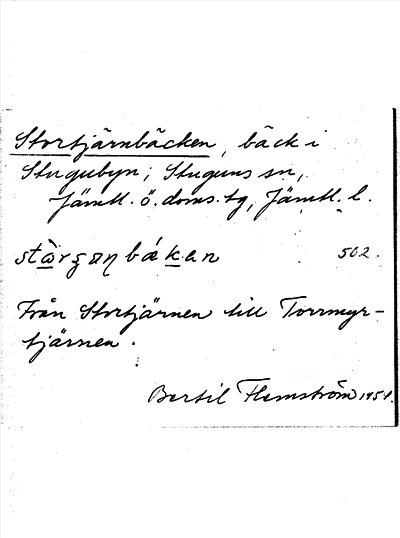 Stortjärnbäcken, bäck i
Stugubyn; Stuguns sn,
Jämtl. ö. doms. tg, Jämtl. l.
502.
Från Stortjärnen till Torrmyr-
tjärnen.
Bertil Flemström 1951.